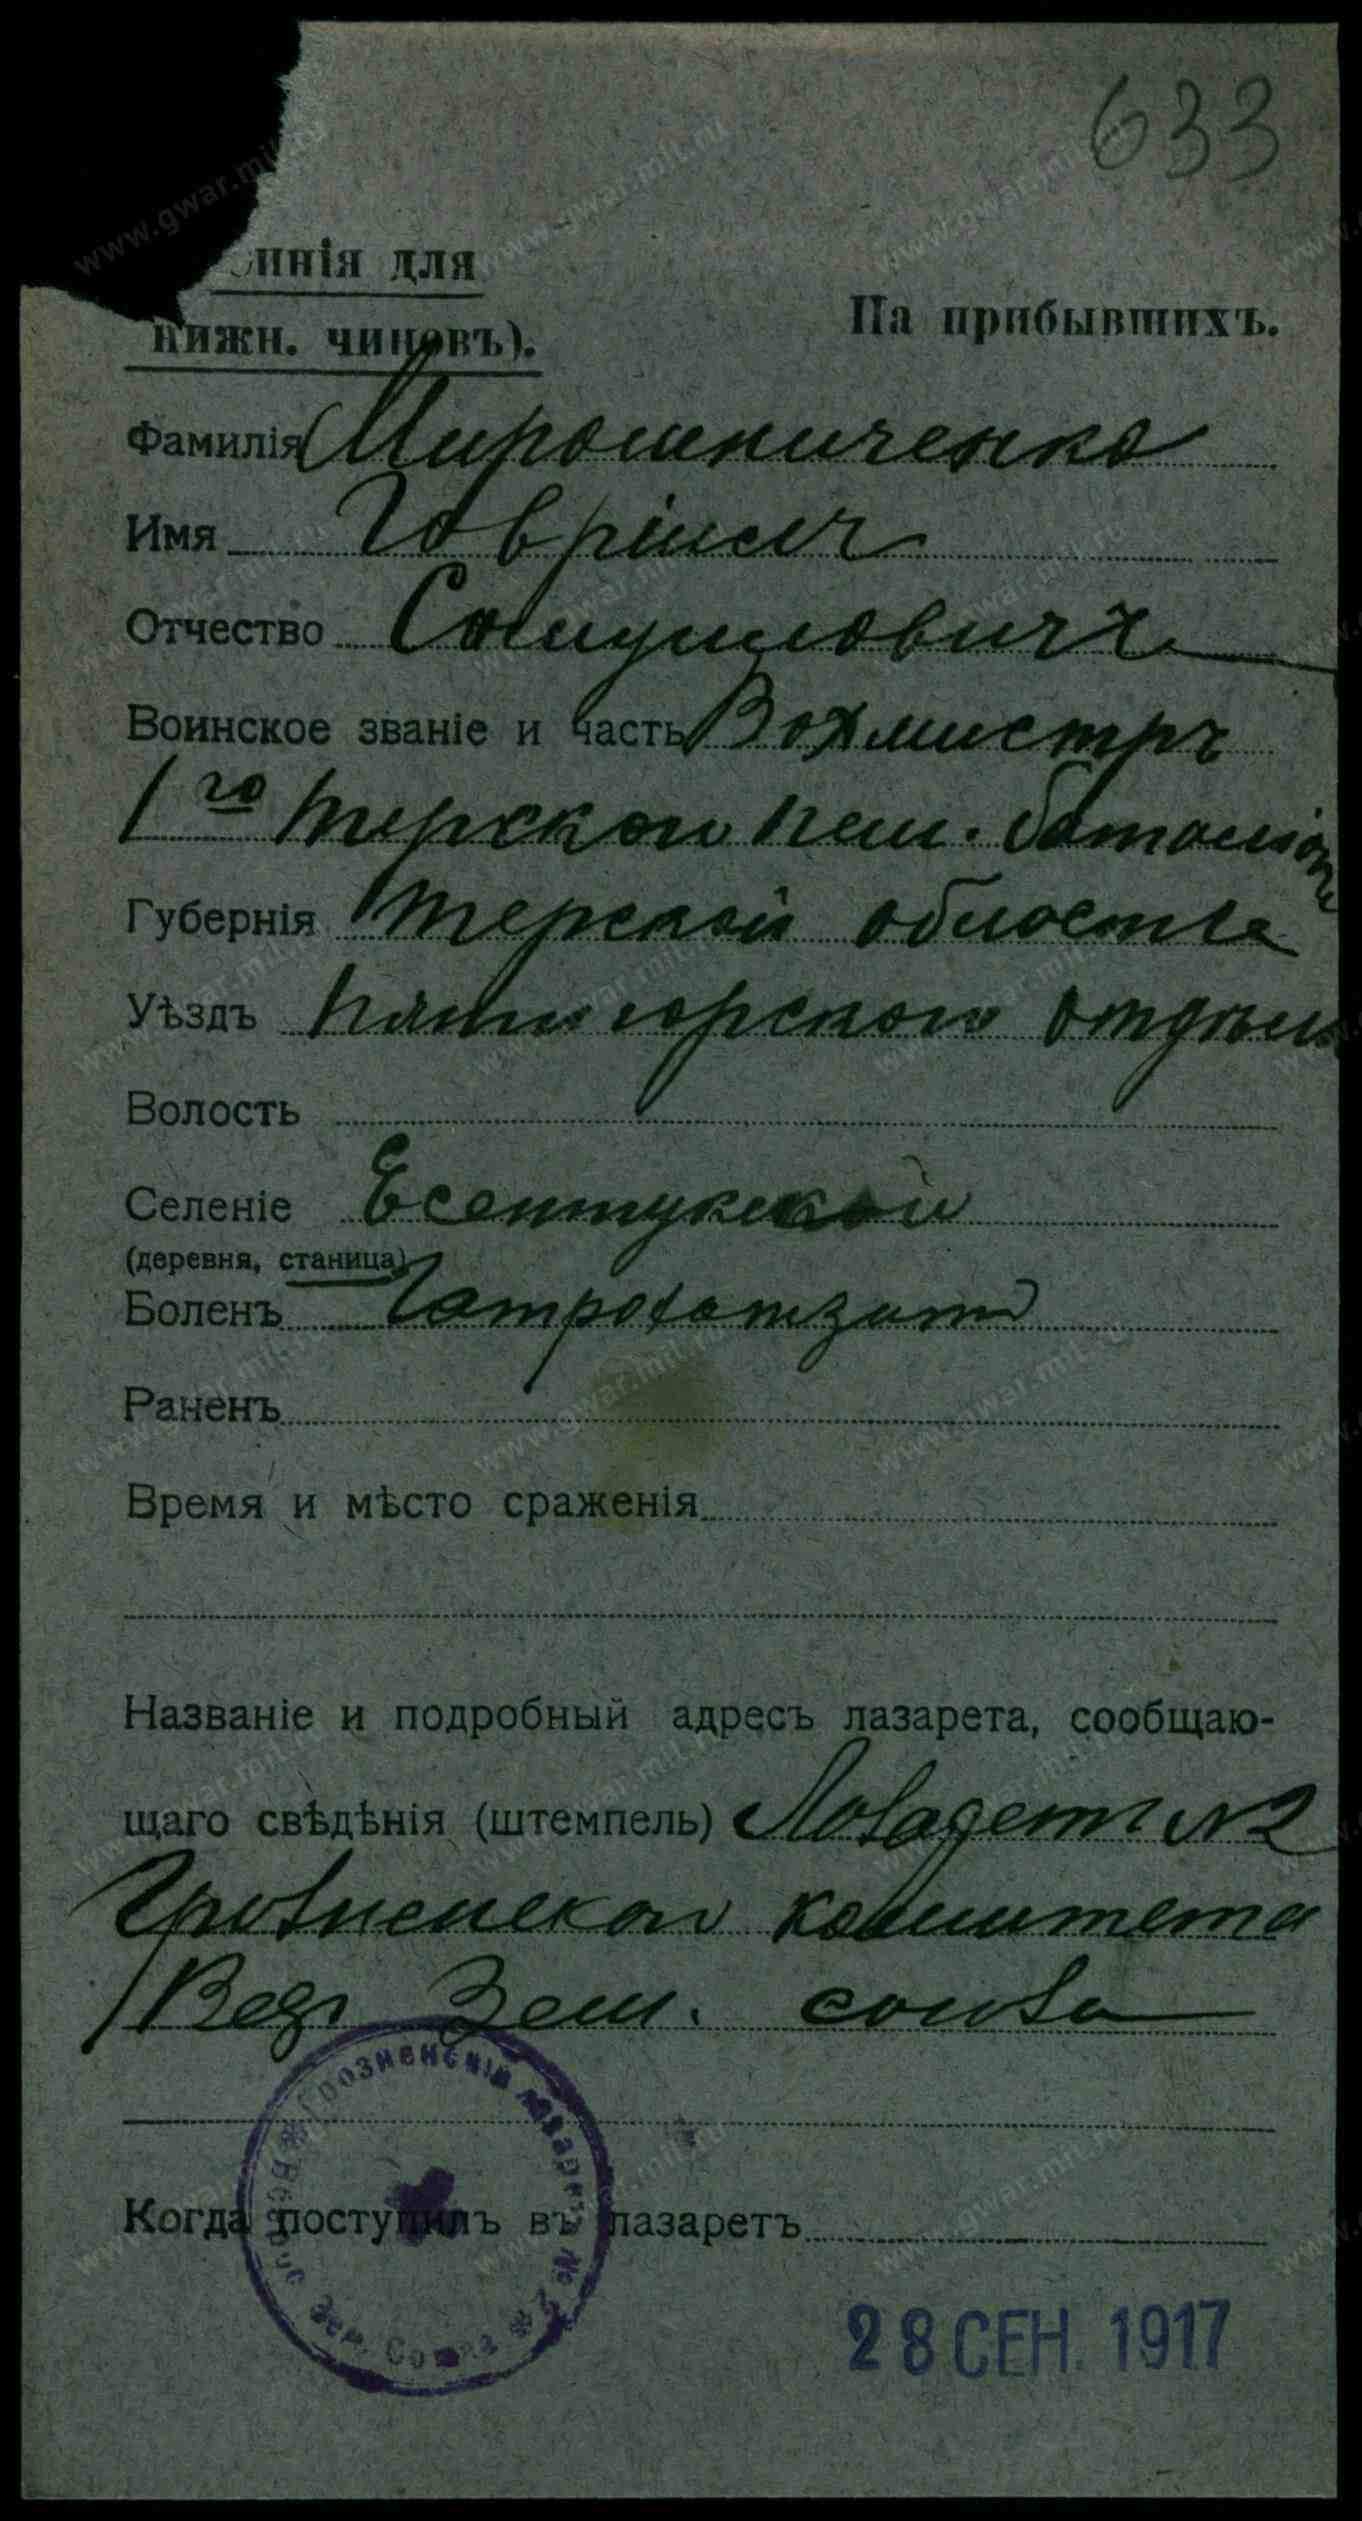 633
нія для
На прибывшихъ.
нижн. чиновъ).
Фамилія Мирошниченко
Имя Гавріилъ
Отчество Самуиловичъ
Воинское званіе и часть Вахмистръ
1го Терскаго пеш. баталіона
Губернія Терской области
Уѣздъ Пятигорскаго отдѣла
Волость
Селеніе Есентукской
(деревня, станица)
Боленъ
Раненъ
Время и мѣсто сраженія
Названіе и подробный адресъ лазарета, сообщаю-
щаго свѣдѣнія (штемпель) Лазаретъ №2
Грозненскаго комитета
Зем. союза
Грозненскій лазаретъ № 2 Всерос. Зем. Союза
Когда поступилъ въ лазаретъ
28 СЕН. 1917
www.gwar.mil.ru